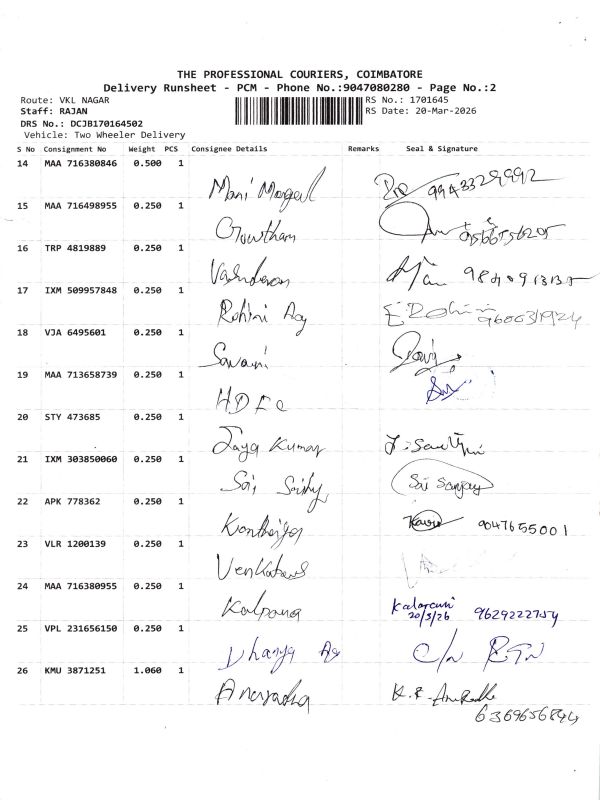 THE PROFESSIONAL COURIERS, COIMBATORE
Delivery Runsheet - PCM - Phone No.:9047080280 - Page No.:2
Route: VKL NAGAR
RS No.: 1701645
Staff: RAJAN
RS Date: 20-Mar-2026
DRS No.: DCJB170164502
Vehicle: Two Wheeler Delivery
S No Consignment No Weight PCS Consignee Details Remarks Seal & Signature
14 MAA 716380846 0.500 1
Mani 9943329992
15 MAA 716498955 0.250 1
Gowtham
16 TRP 4819889 0.250 1
17 IXM 509957848 0.250 1
Rohini E. Rohini 9600631924
18 VJA 6495601 0.250 1
19 MAA 713658739 0.250 1
HDFC
20 STY 473685 0.250 1
Jaya Kumar
21 IXM 303850060 0.250 1
Sai Sai Sanjay
22 APK 778362 0.250 1
9047655001
23 VLR 1200139 0.250 1
24 MAA 716380955 0.250 1
Kalpana 20/3/26 9629222754
25 VPL 231656150 0.250 1
Dhanya
26 KMU 3871251 1.060 1
Anuradha K.R. Anuradha